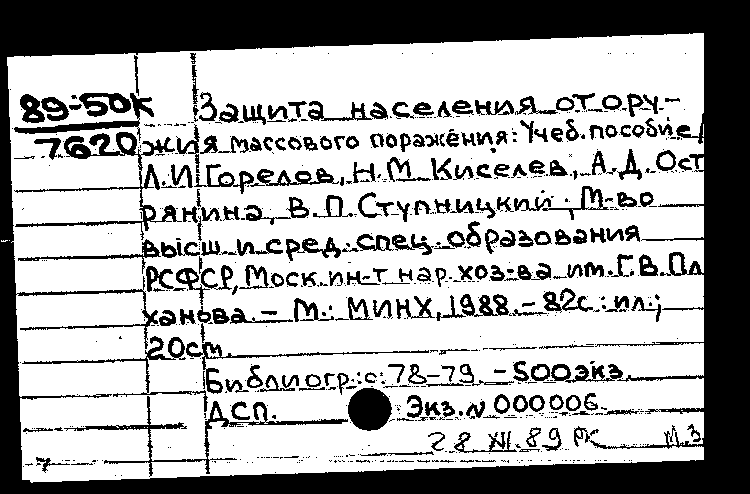 89-50к Защита населения от ору-
7620 жия массового поражения: Учеб. пособие /
Л.И Горелов, Н.М Киселев, А.Д. Ост
рянина, В.П. Ступницкий ; М-во
высш и сред. спец. образования
РСФСР, Моск. ин-т нар. хоз-ва им. Г.В. Пл
ханова. – М.: МИНХ, 1988. – 82с.: ил.;
20см.
Библиогр.: с. 78-79. – 500экз.
ДСП. Экз. № 000006.
28 XII.89 РК М.З